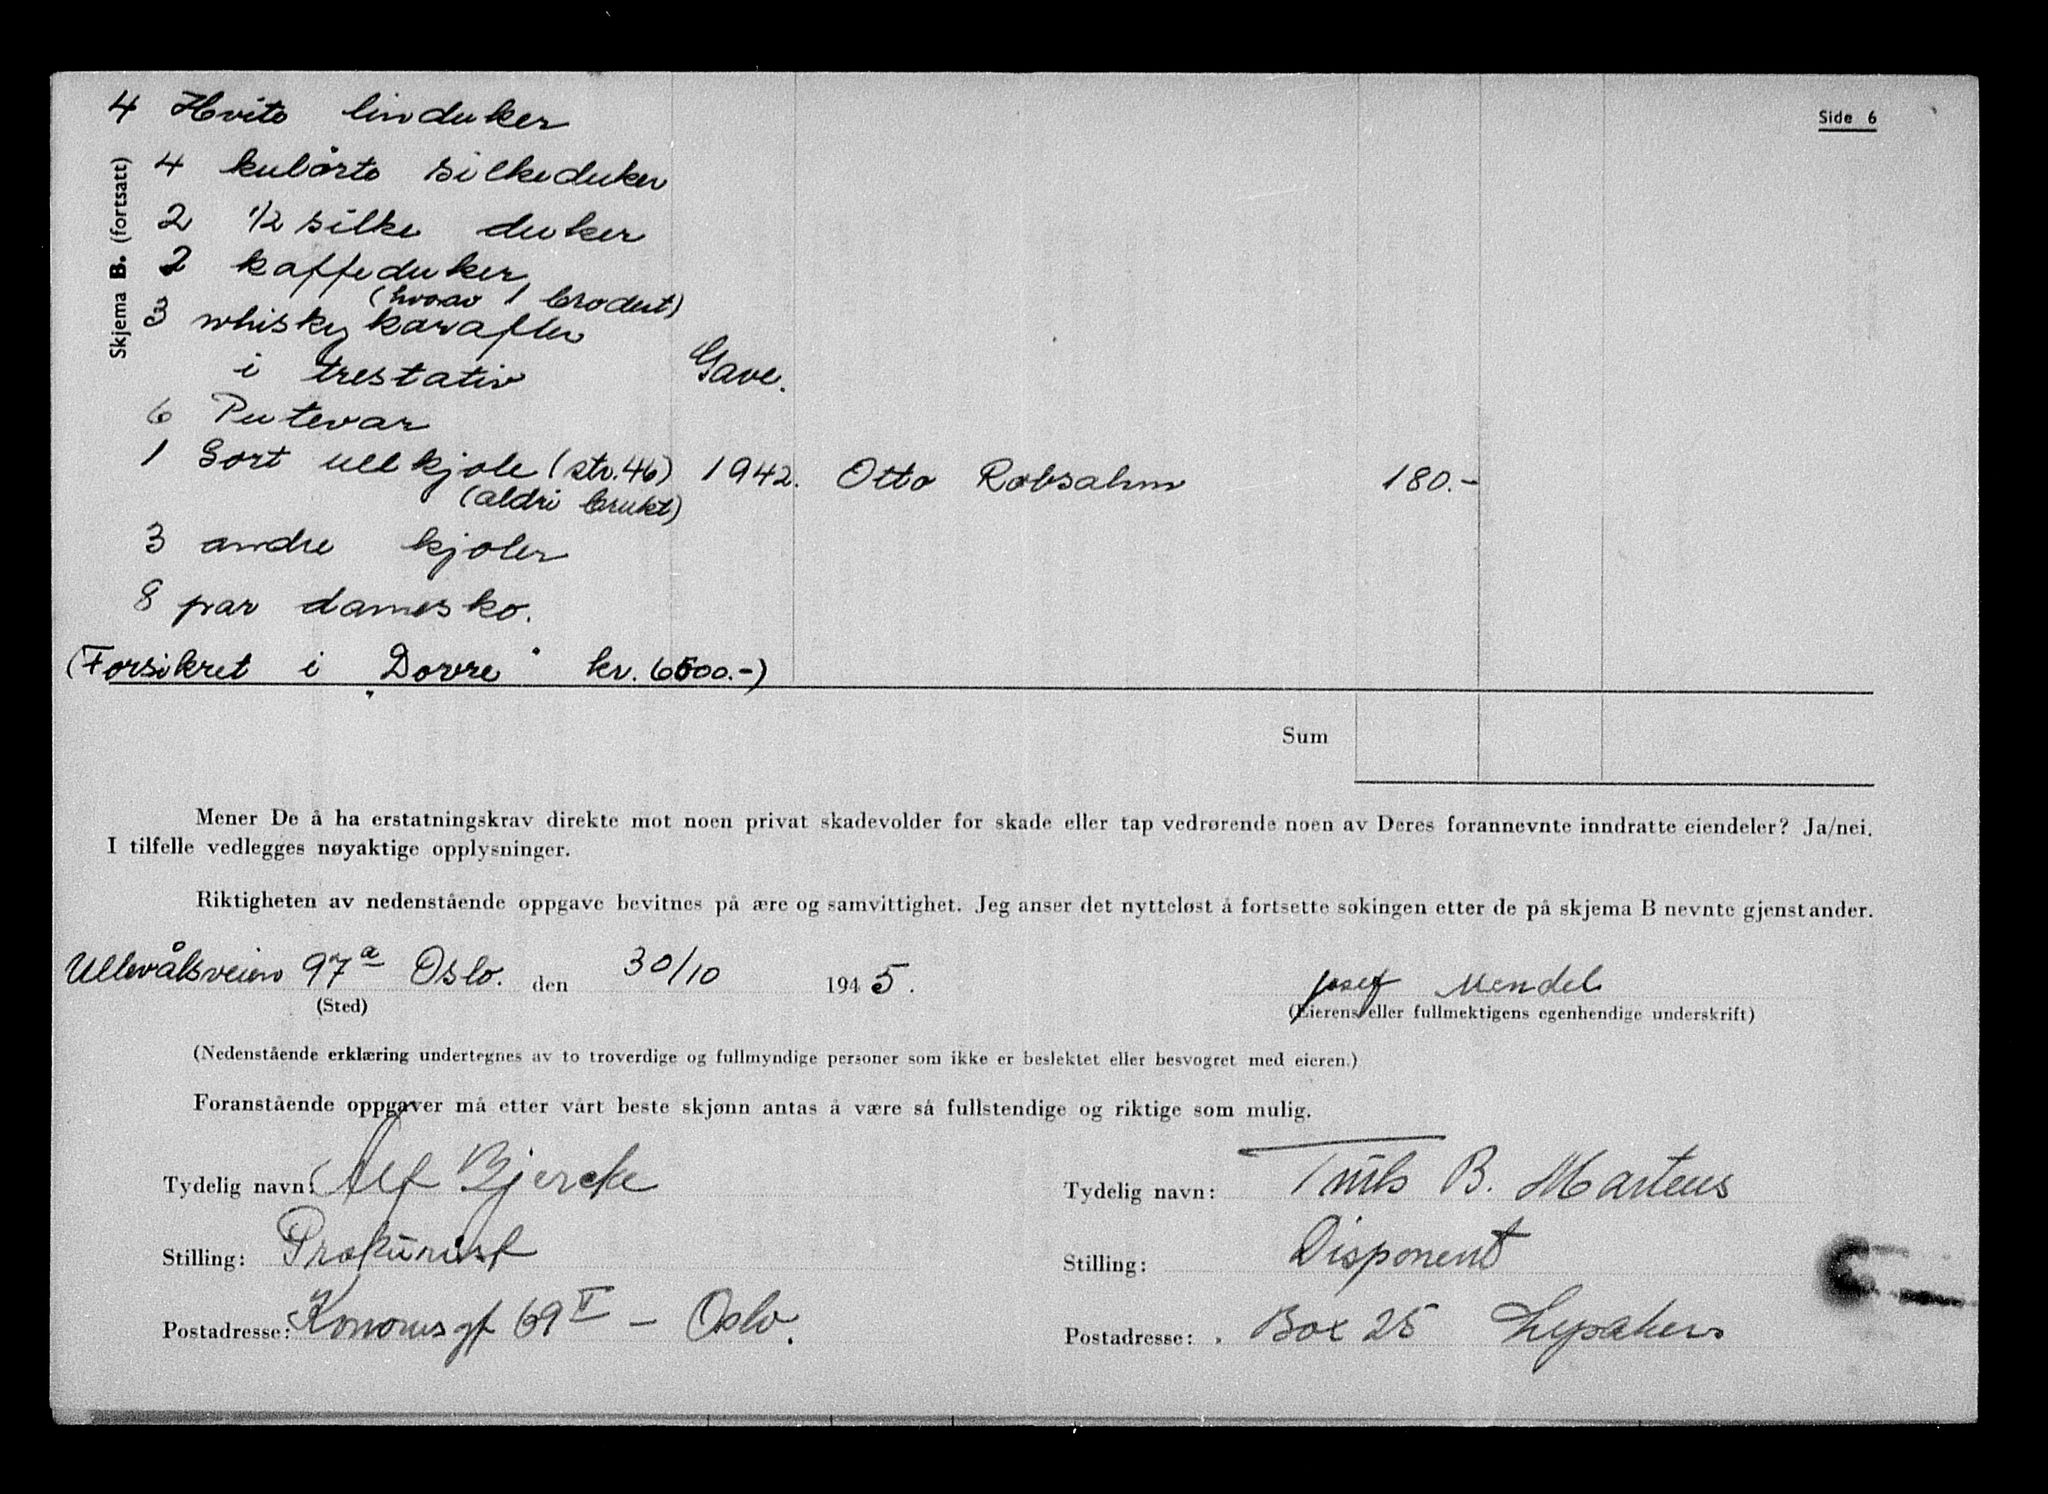 Side 6
Skjema B. (fortsatt)
4 Hvite linduker
4 kulørte silkeduker
2 1/2 silke duker
2 kaffeduker
(hvorav 1 brodert)
3 whisky karafler
i trestativ Gave.
6 Putevar
1 Sort ullkjole (str. 46) 1942. Otto Robsahm 180.-
(aldri brukt)
3 andre kjoler
8 par damesko.
(Forsikret i "Dovre" kr. 6500.-)
Sum
Mener De å ha erstatningskrav direkte mot noen privat skadevolder for skade eller tap vedrørende noen av Deres forannevnte inndratte eiendeler? Ja/nei.
I tilfelle vedlegges nøyaktige opplysninger.
Riktigheten av nedenstående oppgave bevitnes på ære og samvittighet. Jeg anser det nytteløst å fortsette søkingen etter de på skjema B nevnte gjenstander.
Ullevålsveien 97a Oslo. den 30/10 1945. Josef Mendel
(Sted) (Eierens eller fullmektigens egenhendige underskrift)
(Nedenstående erklæring undertegnes av to troverdige og fullmyndige personer som ikke er beslektet eller besvogret med eieren.)
Foranstående oppgaver må etter vårt beste skjønn antas å være så fullstendige og riktige som mulig.
Tydelig navn: Alf Bjercke Tydelig navn: B. Martens
Stilling: Prokurist Stilling: Disponent
Postadresse: 69 I - Oslo. Postadresse: Box 25 Lysaker